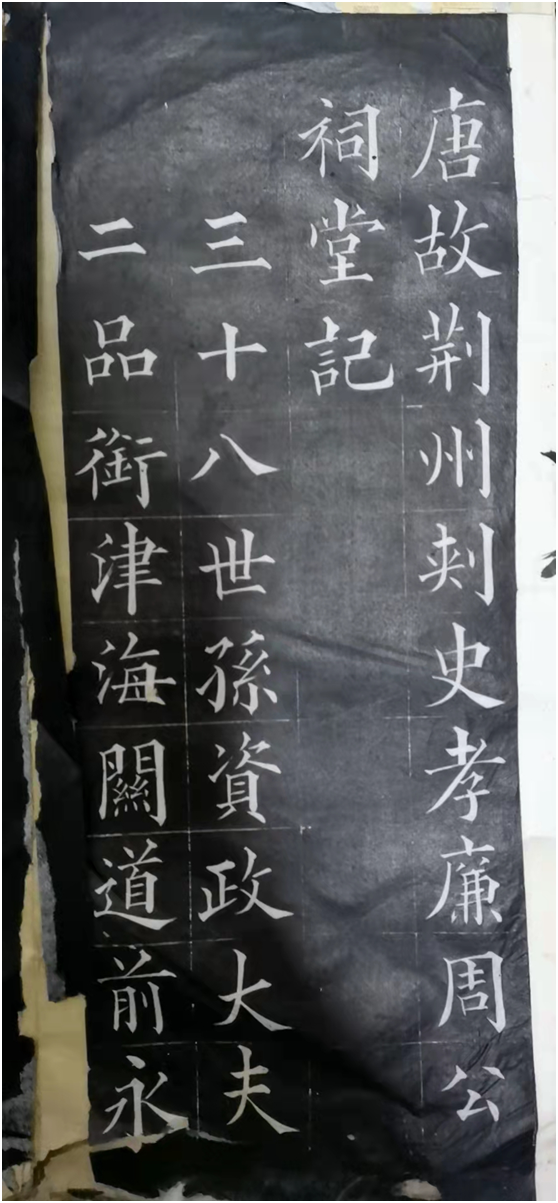 唐故荆州刾史孝廉周公
祠堂記
三十八世孫資政大夫
二品銜津海關道前永